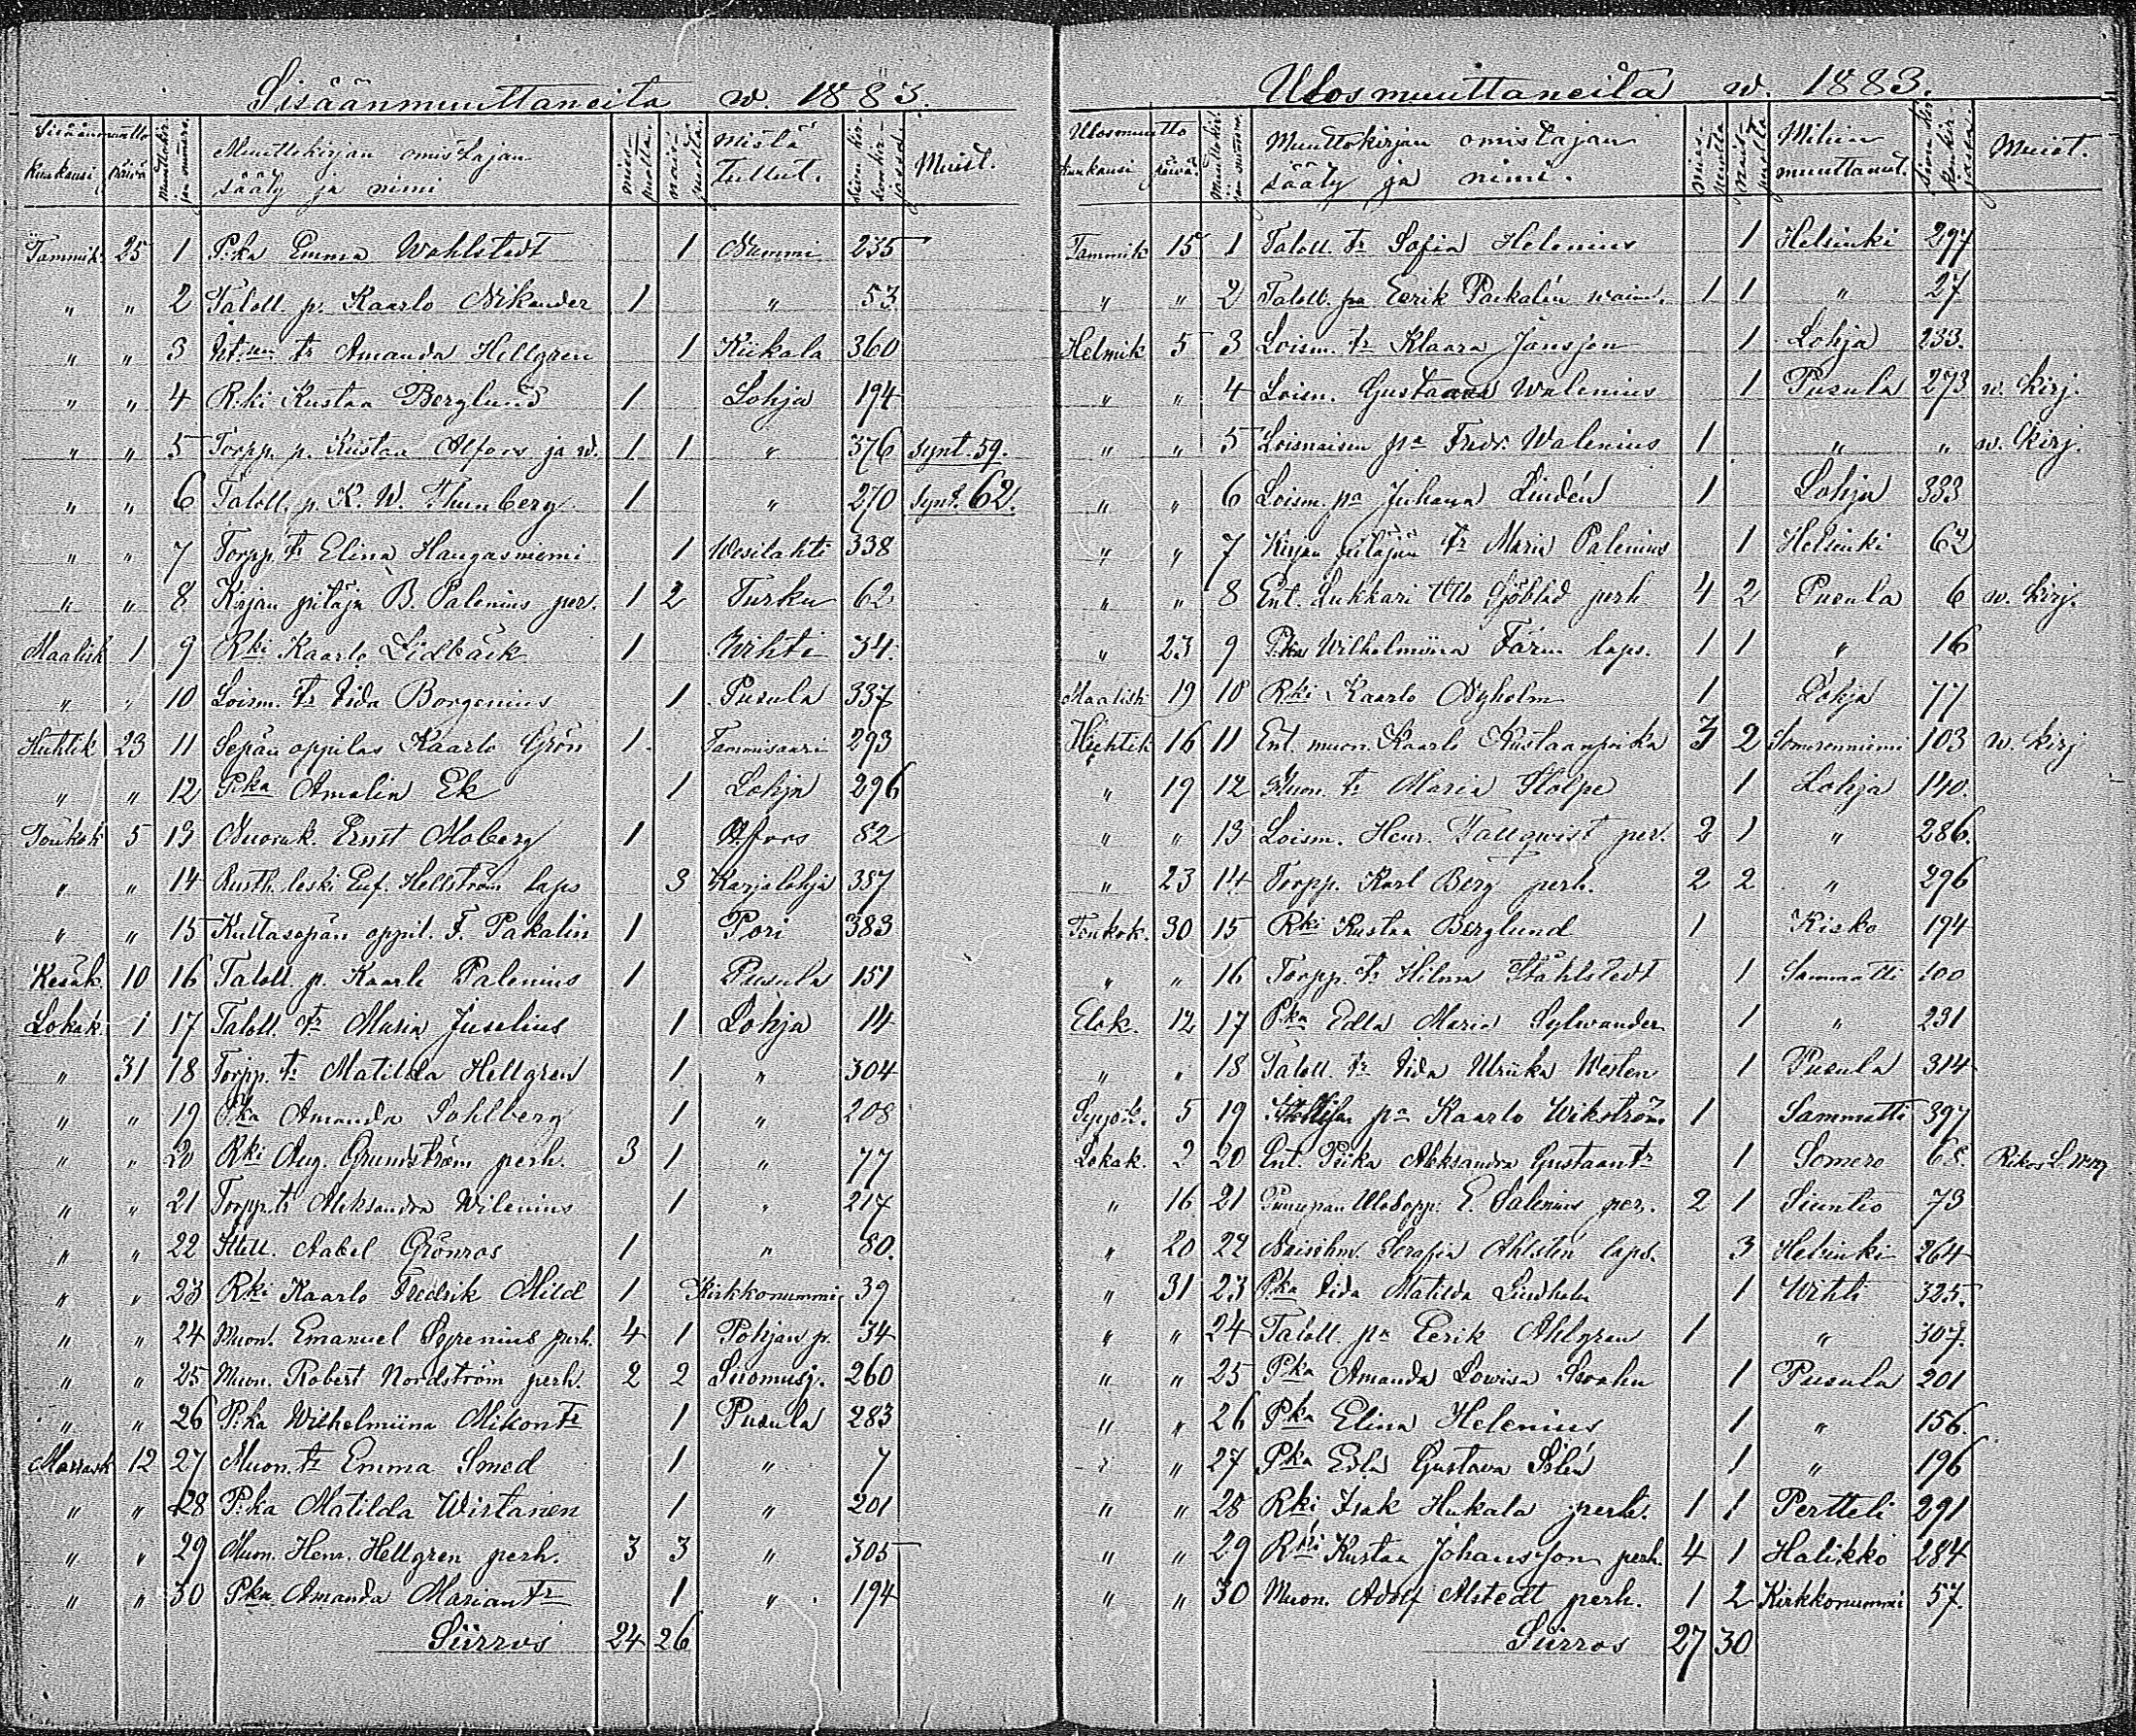 Sisäänmuuttaneita w. 1883.
Sisäänmuutto
Kuukausi Päivä Muuttokirjan numero. Muuttokirjan omistajan sääty ja nimi mies-puolia. nais-puolia. Mistä tullut. Sivu kirkonkirjassa. Muist.
Tammik. 25 1 P:ka Emma Wahlstedt 1 Nummi 235
" " 2 Taloll. p. Kaarlo Nikander 1 " 53
" " 3 tr Amanda Hellgren 1 Kiikala 360
" " 4 R:ki Kustaa Berglund 1 Lohja 194
" " 5 Torpp. p. Kustaa Alfors ja w. 1 1 " 376 synt. 59.
" " 6 Taloll. p. K. W. Thunberg 1 " 270 synt. 62.
" " 7 Torpp. tr Elina Haugasniemi 1 Wesilahti 338
" " 8 Kirjan pitäjä B. Palenius per. 1 2 Turku 62
Maalisk 1 9 Rki Kaarlo Lidbäck 1 Wihti 34.
" " 10 Loism. tr Iida Borgenius 1 Pusula 337
Huhtik 23 11 Sepän oppilas Kaarlo Grön 1 Tammisaari 293
" " 12 P:ka Amalia Ek 1 Lohja 296
Toukok 5 13 Nuoruk. Ernst Moberg 1 H:fors 82
" " 14 Rusth. leski Euf. Hellström laps 3 Karjalohja 387
" " 15 Kultasepän oppil. F. Pakalin 1 Pori 383
Kesäk. 10 16 Taloll. p. Kaarle Palenius 1 Pusula 151
Lokak. 1 17 Taloll. tr Maria Juselius 1 Lohja 14
" 31 18 Torpp. tr Matilda Hellgren 1 " 304
" " 19 P:ka Amanda Sohlberg 1 " 208
" " 20 Rki Aug. Grundström perh. 3 1 " 77
" " 21 Torpp. tr Aleksandra Wilenius 1 " 217
" " 22 Itell. Aabel Grönroos 1 " 80.
" " 23 Rki Kaarlo Fredrik Mild 1 Kirkkonummi 39
" " 24 Muon. Emanuel Syrenius perh. 4 1 Pohjan p. 34
" " 25 Muon. Robert Nordström perh. 2 2 Suomusj. 260
" " 26 P:ka Wilhelmiina Mikontr 1 Pusula 283
Marrask 12 27 Muon. tr Emma Smed 1 " 7
" " 28 P:ka Matilda Wirtanen 1 " 201
" " 29 Muon. Henr. Hellgren perh. 3 3 " 305
" " 30 Pka Amanda Mariantr 1 " 194
Siirros 24 26
Ulosmuuttaneita w. 1883.
Ulosmuutto
Kuukausi päivä. Muuttokirjan numero. Muuttokirjan omistajan sääty ja nimi. mies-puolia nais-puolia Mihin muuttanut. Sivu kirkonkirjassa. Muist.
Tammik 15 1 Taloll. tr Sofia Helenius 1 Helsinki 297
" " 2 Taloll. pa Eerik Pakalén waim. 1 1 " 27
Helmik 5 3 Loism. tr Klaara Jansson 1 Lohja 233.
" " 4 Loism. Gustaava Walenius 1 Pusula 273 w. kirj.
" " 5 Loismaisen pa Fredr. Walenius 1 " " w. kirj.
" " 6 Loism. pa Juhana Lindén 1 Lohja 333
" " 7 Kirjan pitäjän tr Maria Palenius 1 Helsinki 62
" " 8 Ent. Lukkari Otto Sjöblad perh 4 2 Pusula 6 w. kirj.
" 23 9 Pka Wilhelmiina Färm laps. 1 1 " 16
Maalisk 19 10 Rki Kaarlo Nyholm 1 Lohja 77
Huhtik 16 11 Ent. muon. Kaarlo Kustaanpoika 3 2 Somerenniemi 103 w. kirj
" 19 12 Muon. tr Maria Stolpe 1 Lohja 140.
" " 13 Loism. Henr. Tallqwist per. 2 1 " 286.
" 23 14 Torpp. Karl Berg perh. 2 2 " 296
Toukok. 30 15 Rki Kustaa Berglund 1 Kisko 194
" " 16 Torpp. tr Hilma Ståhlstedt 1 Sammatti 100
Elok. 12 17 Pka Edla Maria Sylwander 1 " 231
" " 18 Taloll. tr Iida Ulriika Westen 1 Pusula 314
Syysk. 5 19 pa Kaarlo Wikström 1 Sammatti 397
Lokak. 2 20 Ent. Piika Aleksandra Gustaantr 1 Somero 68.
" 16 21 E. Salenius per. 2 1 Siuntio 73
" 20 22 Serafia Ahlsten laps. 3 Helsinki 264
" 31 23 Pka Iida Matilda Lindholm 1 Wihti 325.
" " 24 Taloll. pa Eerik Ahlgren 1 " 307.
" " 25 Pka Amanda Lowisa 1 Pusula 201
" " 26 Pka Elina Helenius 1 " 156.
" " 27 Pka Edla Gustava Silén 1 " 196
" " 28 Rki Isak Hukala perh. 1 1 Pertteli 291
" " 29 Rki Kustaa Johansson perh. 4 1 Halikko 284
" " 30 Muon. Adolf Alstedt perh. 1 2 Kirkkonummi 57.
Siirros 27 30